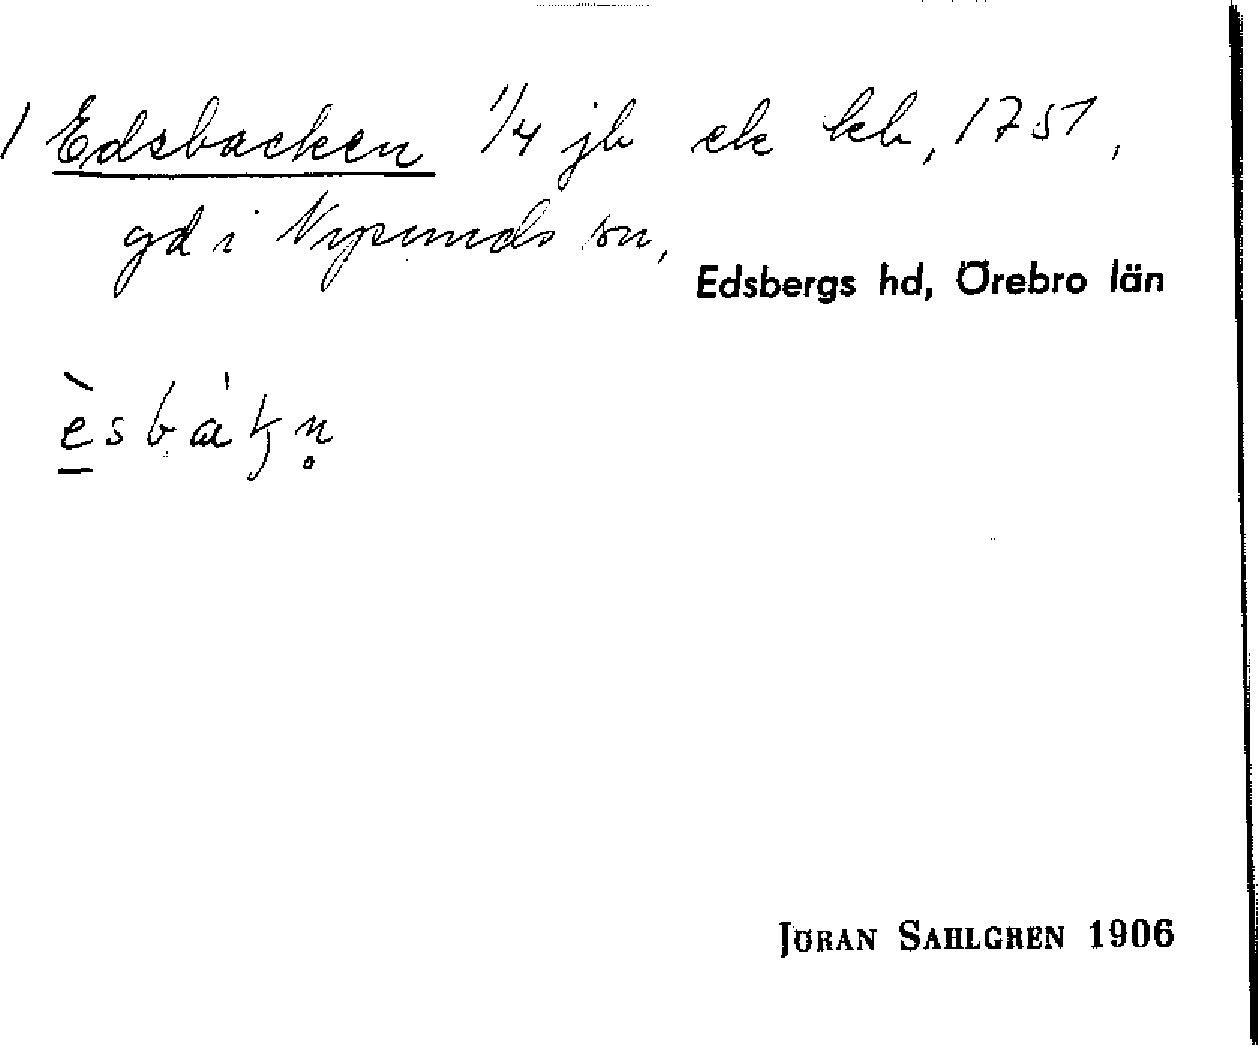 1 Edsbacken 1/4 jb ek kb, 1751,
gd i Nysunds sn,
Edsbergs hd, Örebro län
èsbàkn̥
JÖRAN SAHLGREN 1906